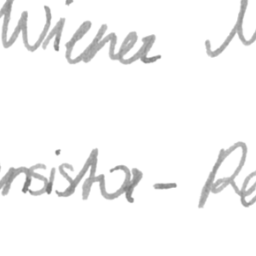 Wiener
nsistor - Re